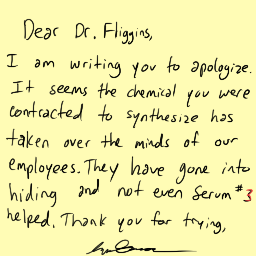 Dear Dr. Fliggins,
I am writing you to apologize.
It seems the chemical you were
contracted to synthesize has
taken over the minds of our
employees. They have gone into
hiding and not even Serum #3
helped. Thank you for trying,